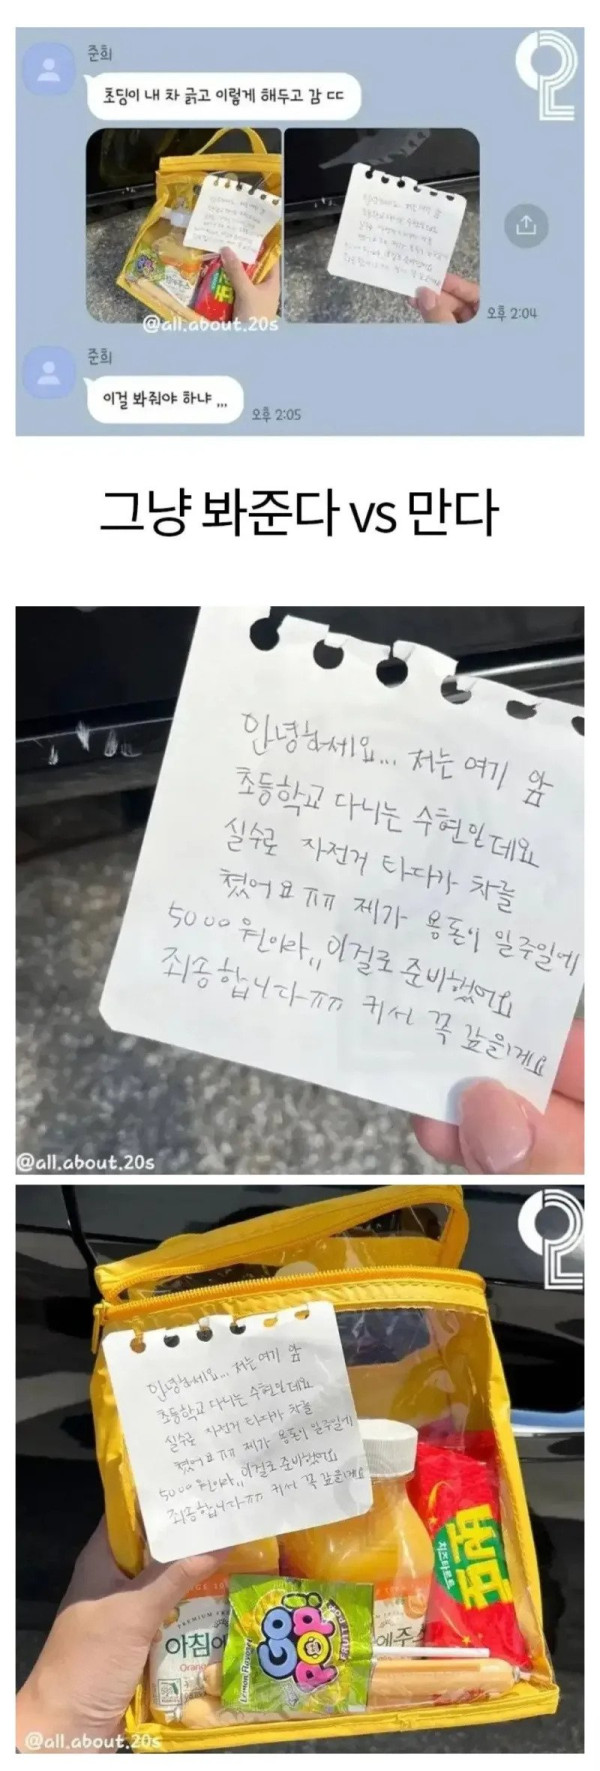 준희
초딩이 내 차 긁고 이렇게 해두고 감 ㄷㄷ
@all.about.20s
오후 2:04
준희
이걸 봐줘야 하냐 ,,,
오후 2:05
그냥 봐준다 vs 만다
안녕하세요... 저는 여기 앞
초등학교 다니는 수현인데요
실수로 자전거 타다가 차를
쳤어요ㅠㅠ 제가 용돈이 일주일에
5000원이라,, 이걸로 준비했어요
죄송합니다ㅠㅠ 커서 꼭 갚을게요
@all.about.20s
안녕하세요... 저는 여기 앞
초등학교 다니는 수현인데요
실수로 자전거 타다가 차를
쳤어요ㅠㅠ 제가 용돈이 일주일에
5000원이라,, 이걸로 준비했어요
죄송합니다ㅠㅠ 커서 꼭 갚을게요
치즈타르트
아침에
Orange
에주스
GO
POP!
FRUIT POP
Lemon Flavor
@all.about.20s